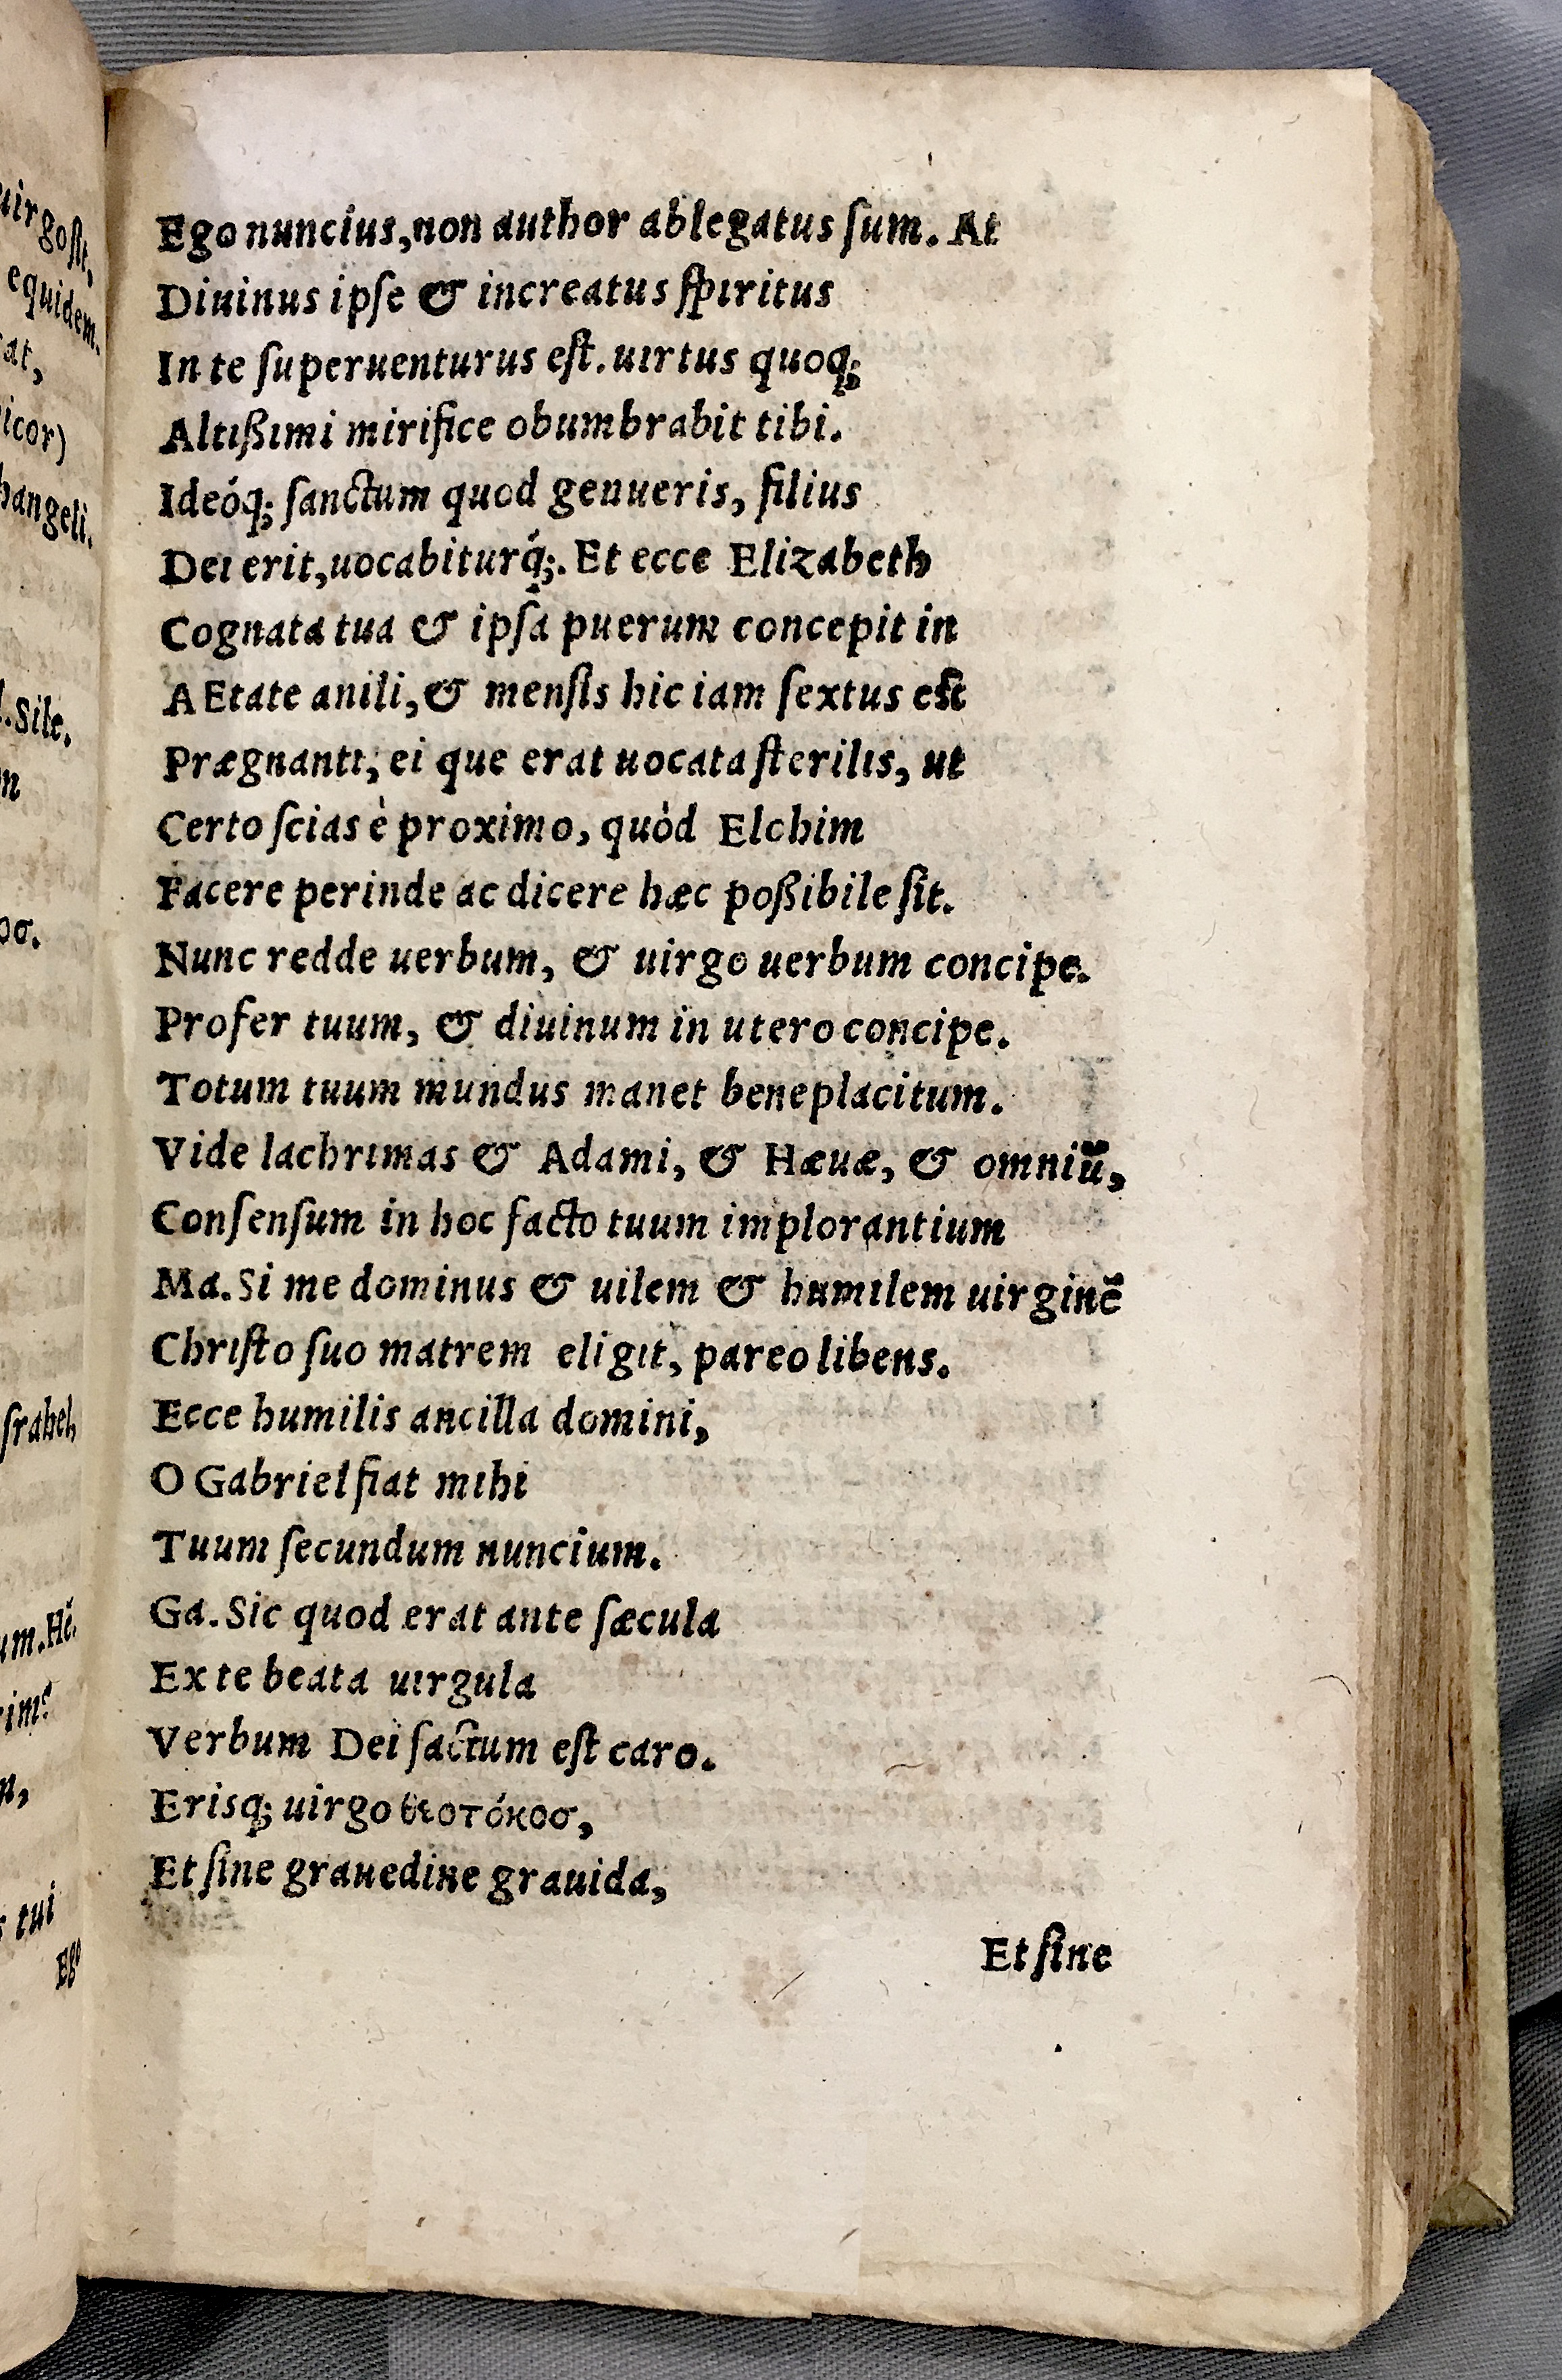 Ego nuncius, non author ablegatus ſum. At
Diuinus ipſe & increatus ſpiritus
In te ſuperuenturus eſt. uirtus quoq;
Altißimi mirifice obumbrabit tibi.
Ideóq; ſanctum quod genueris, filius
Dei erit, uocabiturq́;. Et ecce Elizabeth
Cognata tua & ipſa puerum concepit in
AEtate anili, & menſis hic iam ſextus est
Prægnanti, ei que erat uocata ſterilis, ut
Certo ſcias è proximo, quòd Elohim
Facere perinde ac dicere hæc poßibile ſit.
Nunc redde uerbum, & uirgo uerbum concipe.
Profer tuum, & diuinum in utero concipe.
Totum tuum mundus manet beneplacitum.
Vide lachrimas & Adami, & Hæuæ, & omniū,
Conſenſum in hoc facto tuum implorantium
Ma. Si me dominus & uilem & humilem uirginē
Chriſto ſuo matrem eligit, pareo libens.
Ecce humilis ancilla domini,
O Gabriel fiat mihi
Tuum ſecundum nuncium.
Ga. Sic quod erat ante ſæcula
Ex te beata uirgula
Verbum Dei factum eſt caro.
Erisq; uirgo θεοτόκοσ,
Et ſine grauedine grauida,
Et ſine
uirgoſt,
equidem.
at,
icor)
hangeli.
Sile.
οσ.
ſrahel,
um. Hé.
n,
tui
Ego